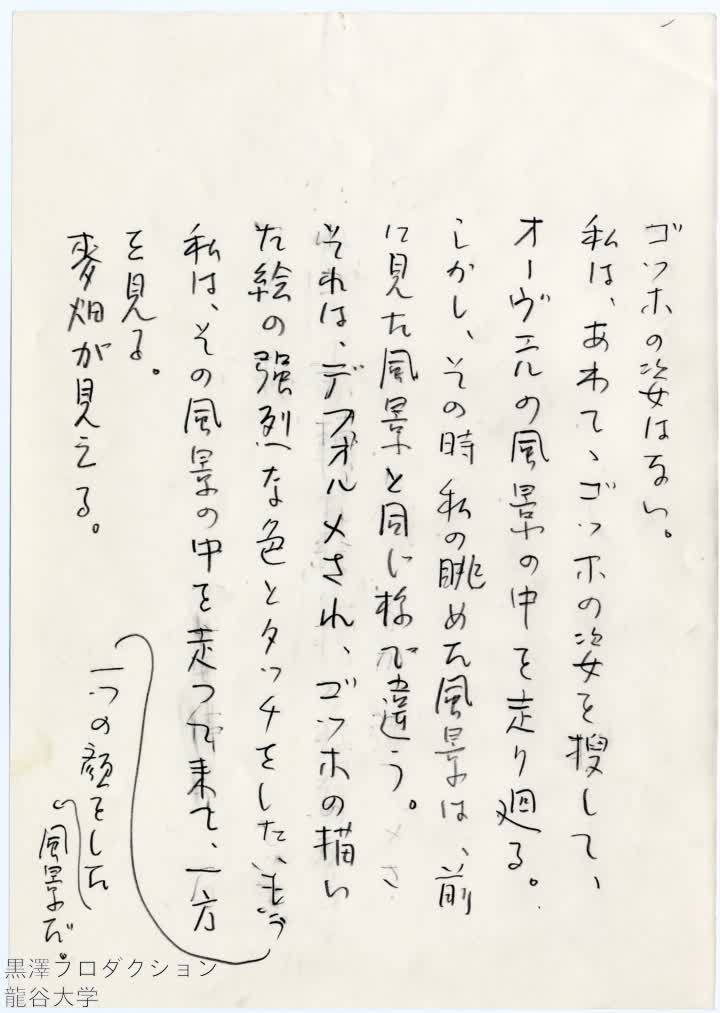 ゴッホの姿はない。
私は、あわて、ゴッホの姿を捜して、
オーヴェルの風景の中を走り廻る。
しかし、その時私の眺めた風景は、前
に見た風景と同じ様で違う。
それは、デフォルメされ、ゴッホの描い
た絵の強烈な色とタッチをした、もう
一つの顔をした
風景だ。
私は、その風景の中を走って来て、一方
を見る。
麦畑が見える。
黒澤プロダクション
龍谷大学